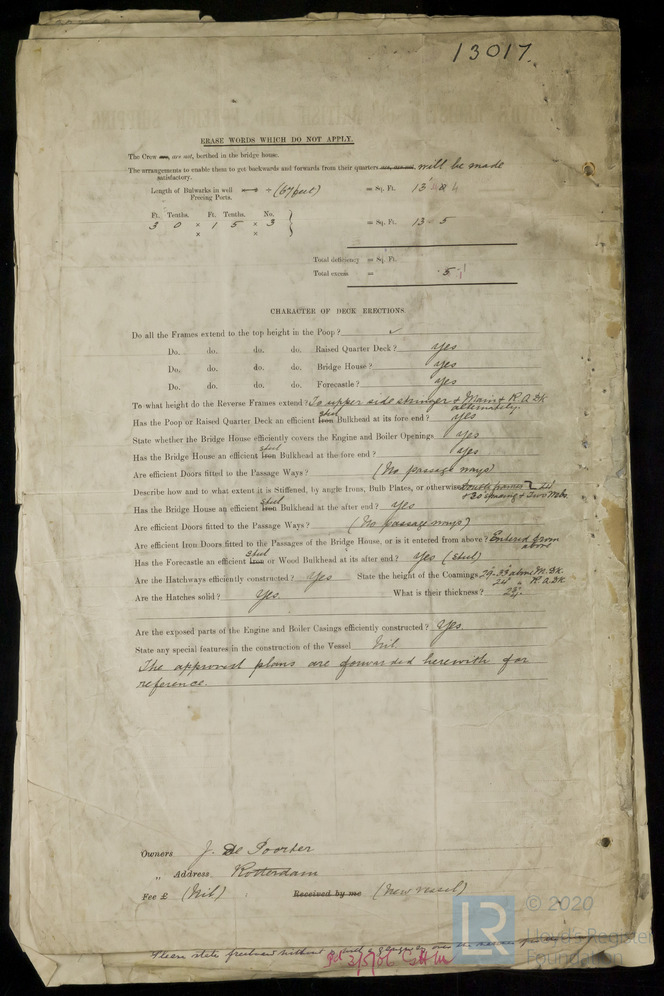 13017.
ERASE WORDS WHICH DO NOT APPLY.
The Crew are, are not, berthed in the bridge house.
The arrangements to enable them to get backwards and forwards from their quarters are, are not will be made
satisfactory.
Length of Bulwarks in well ÷ (67 feet) = Sq. Ft. 13
Freeing Ports.
Ft. Tenths. Ft. Tenths. No.
3 0 × 1 5 × 3 = Sq. Ft. 13 5
× ×
Total deficiency = Sq. Ft.
Total excess =
CHARACTER OF DECK ERECTIONS.
Do all the Frames extend to the top height in the Poop? ✓
Do. do. do. do. Raised Quarter Deck? Yes
Do. do. do. do. Bridge House? Yes
Do. do. do. do. Forecastle? Yes
To what height do the Reverse Frames extend? To upper side stringer & Main & R.Q.Dk
alternately.
Has the Poop or Raised Quarter Deck an efficient Iron Steel Bulkhead at its fore end? Yes
State whether the Bridge House efficiently covers the Engine and Boiler Openings Yes
Has the Bridge House an efficient Iron Steel Bulkhead at the fore end? Yes
Are efficient Doors fitted to the Passage Ways? (No passage ways)
Describe how and to what extent it is Stiffened, by angle Irons, Bulb Plates, or otherwise Double frames 24
& 30 spacing & Two Webs.
Has the Bridge House an efficient Iron Steel Bulkhead at the after end? Yes
Are efficient Doors fitted to the Passage Ways? (No passage ways)
Are efficient Iron Doors fitted to the Passages of the Bridge House, or is it entered from above? Entered from
above
Has the Forecastle an efficient Iron Steel or Wood Bulkhead at its after end? Yes (Steel)
Are the Hatchways efficiently constructed? Yes State the height of the Coamings 29-33 above M. Dk.
24" " R.Q.Dk.
Are the Hatches solid? Yes What is their thickness?
Are the exposed parts of the Engine and Boiler Casings efficiently constructed? Yes.
State any special features in the construction of the Vessel Nil.
The approved plans are forwarded herewith for
reference.
Owners J. De Poorter
" Address Rotterdam
Fee £ (Nil) Received by me (New Vessel)
Please state freeboard without
© 2020
Lloyd's Register
Foundation
LR